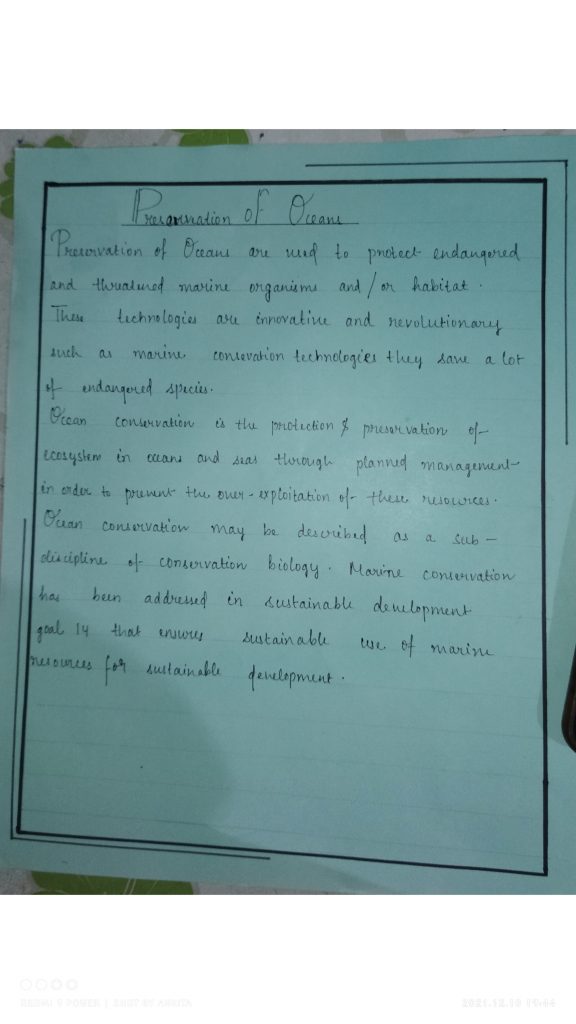 Preservation of Oceans
Preservation of Oceans are used to protect endangered
and threatened marine organisms and/or habitat.
These technologies are innovative and revolutionary
such as marine consevation technologies they save a lot
of endangered species.
Ocean conservation is the protection & preservation of
ecosystem in oceans and seas through planned management
in order to prevent the over-exploitation of these resources.
Ocean conservation may be described as a sub-
discipline of conservation biology. Marine conservation
has been addressed in sustainable development
goal 14 that ensures sustainable use of marine
resources for sustainable development.